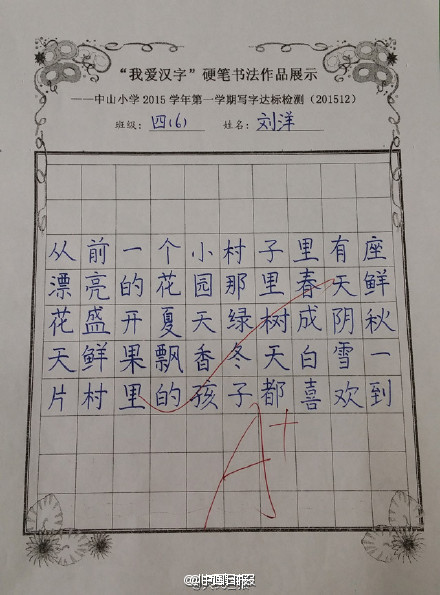 “我爱汉字”硬笔书法作品展示
——中山小学2015学年第一学期写字达标检测（201512）
班级：四(6) 姓名：刘洋
从前一个小村子里有座
漂亮的花园那里春天鲜
花盛开夏天绿树成阴秋
天鲜果飘香冬天白雪一
片村里的孩子都喜欢到
A+
@中国日报